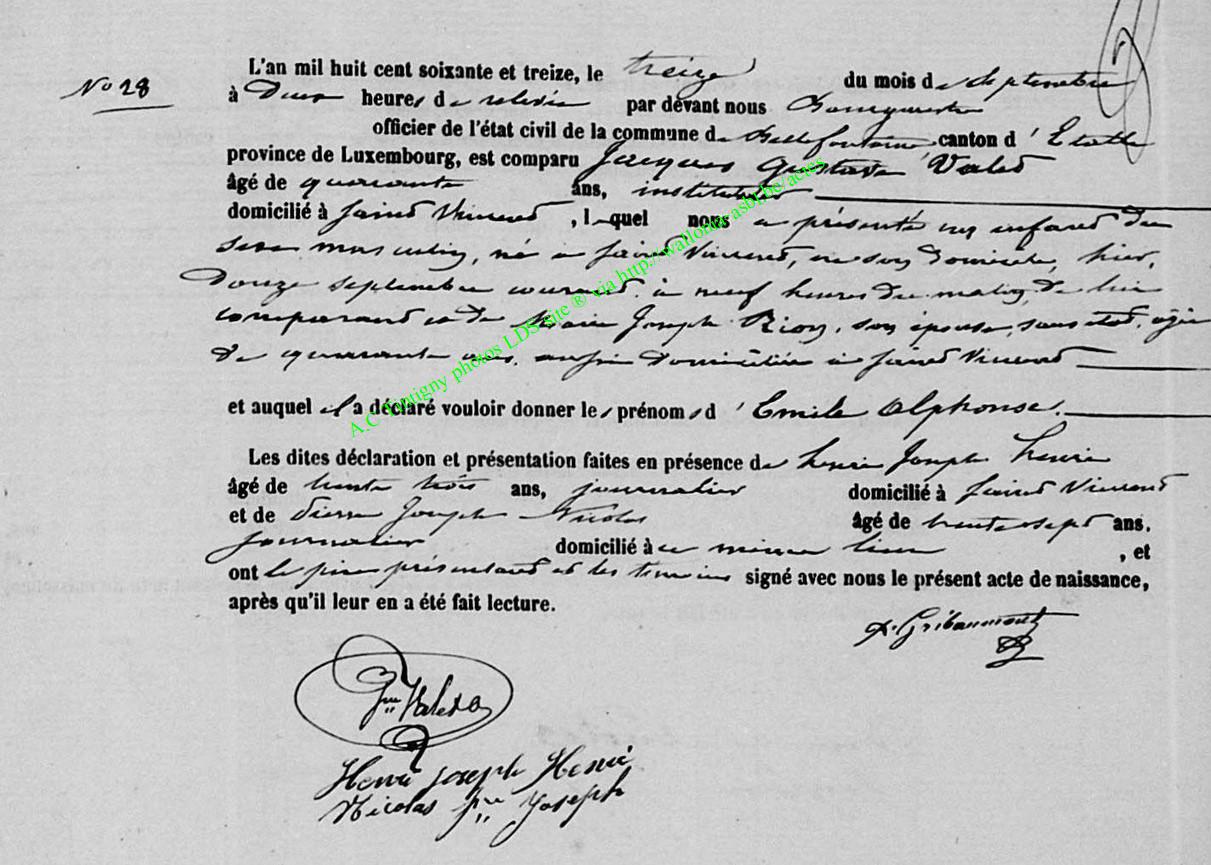 No 28
L'an mil huit cent soixante et treize, le treize du mois de septembre
à Deux heures de relevée par devant nous Bourgmestre
officier de l'état civil de la commune de Bellefontaine canton d'Etalle
province de Luxembourg, est comparu Jacques Gustave Valet
âgé de quarante ans, instituteur
domicilié à Saint Vincent, lequel nous a présenté un enfant du
sexe masculin, né à Saint Vincent, en son Domicile, hier,
Douze septembre courant à neuf heures du matin, de lui
comparant et de Marie Joseph Rion, son épouse, sans état, agée
de quarante ans, aussi Domiciliée à Saint Vincent
et auquel il a déclaré vouloir donner les prénoms d'Emile Alphonse.
Les dites déclaration et présentation faites en présence de Henri Joseph Henri
âgé de trente trois ans, journalier domicilié à Saint Vincent
et de Pierre Joseph Nicolas âgé de trente sept ans.
journalier domicilié à ce même lieu, et
ont le père présentant et les témoins signé avec nous le présent acte de naissance,
après qu'il leur en a été fait lecture.
Gribaumont
Valet
Henri joseph Henri
Nicolas Pre Joseph
A.C Tintigny photos LDS site ® via http://wallonia.asbl.be/actes